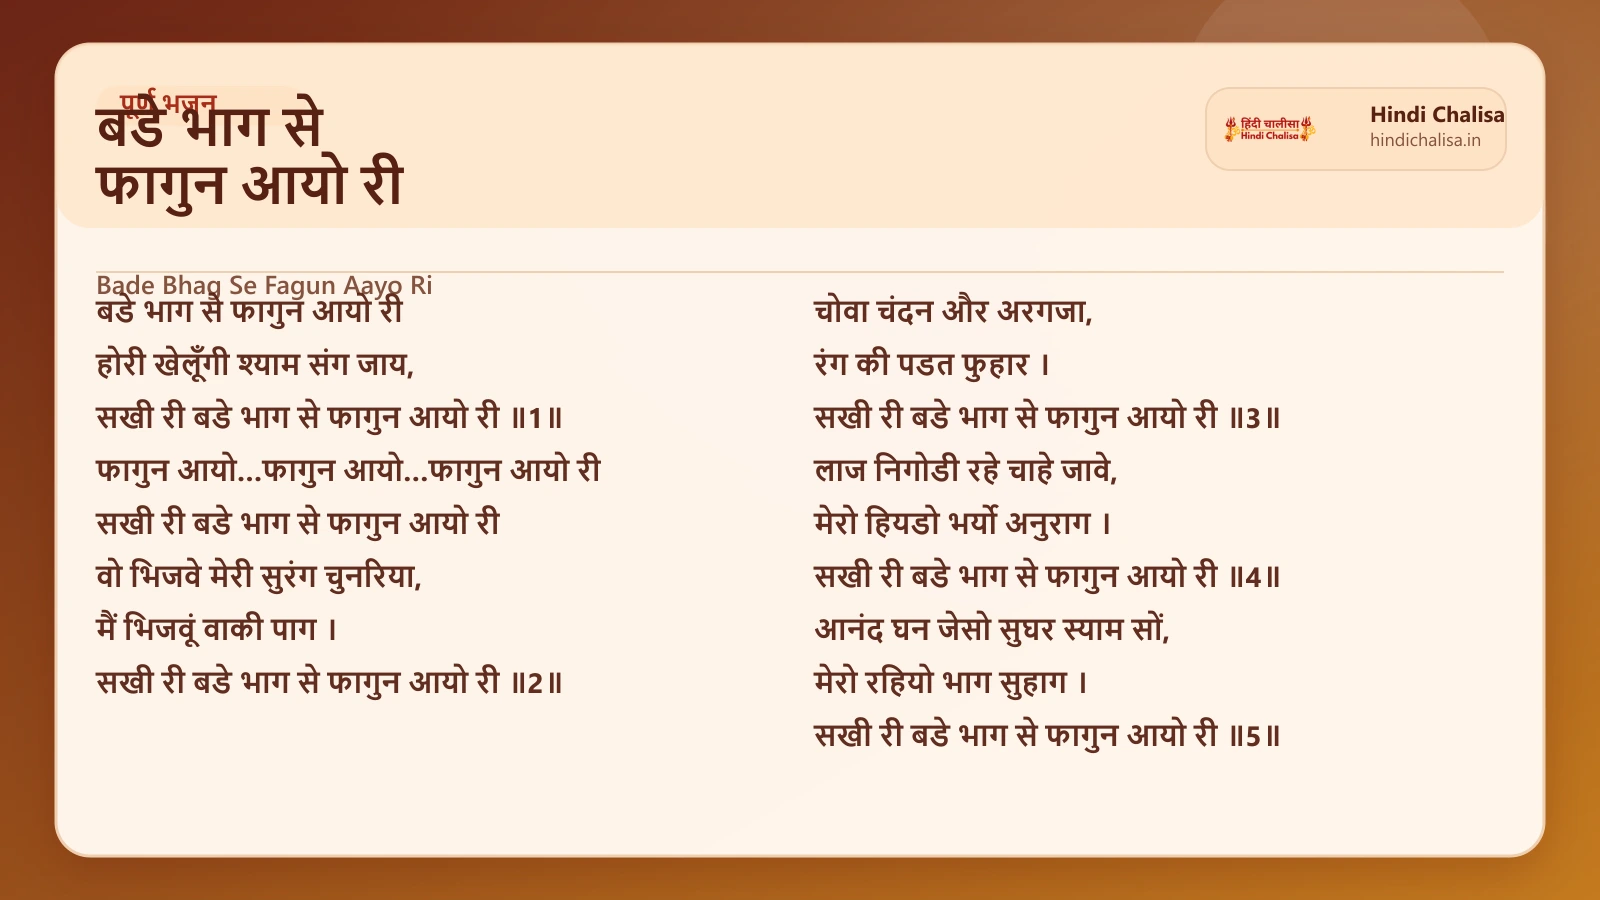 पूर्ण भजन
बडे भाग से
फागुन आयो री
हिंदी चालीसा
Hindi Chalisa
Hindi Chalisa
hindichalisa.in
Bade Bhag Se Fagun Aayo Ri
बडे भाग से फागुन आयो री
होरी खेलूँगी श्याम संग जाय,
सखी री बडे भाग से फागुन आयो री ॥1॥
फागुन आयो...फागुन आयो...फागुन आयो री
सखी री बडे भाग से फागुन आयो री
वो भिजवे मेरी सुरंग चुनरिया,
मैं भिजवूं वाकी पाग ।
सखी री बडे भाग से फागुन आयो री ॥2॥
चोवा चंदन और अरगजा,
रंग की पडत फुहार ।
सखी री बडे भाग से फागुन आयो री ॥3॥
लाज निगोडी रहे चाहे जावे,
मेरो हियडो भर्यो अनुराग ।
सखी री बडे भाग से फागुन आयो री ॥4॥
आनंद घन जेसो सुघर स्याम सों,
मेरो रहियो भाग सुहाग ।
सखी री बडे भाग से फागुन आयो री ॥5॥